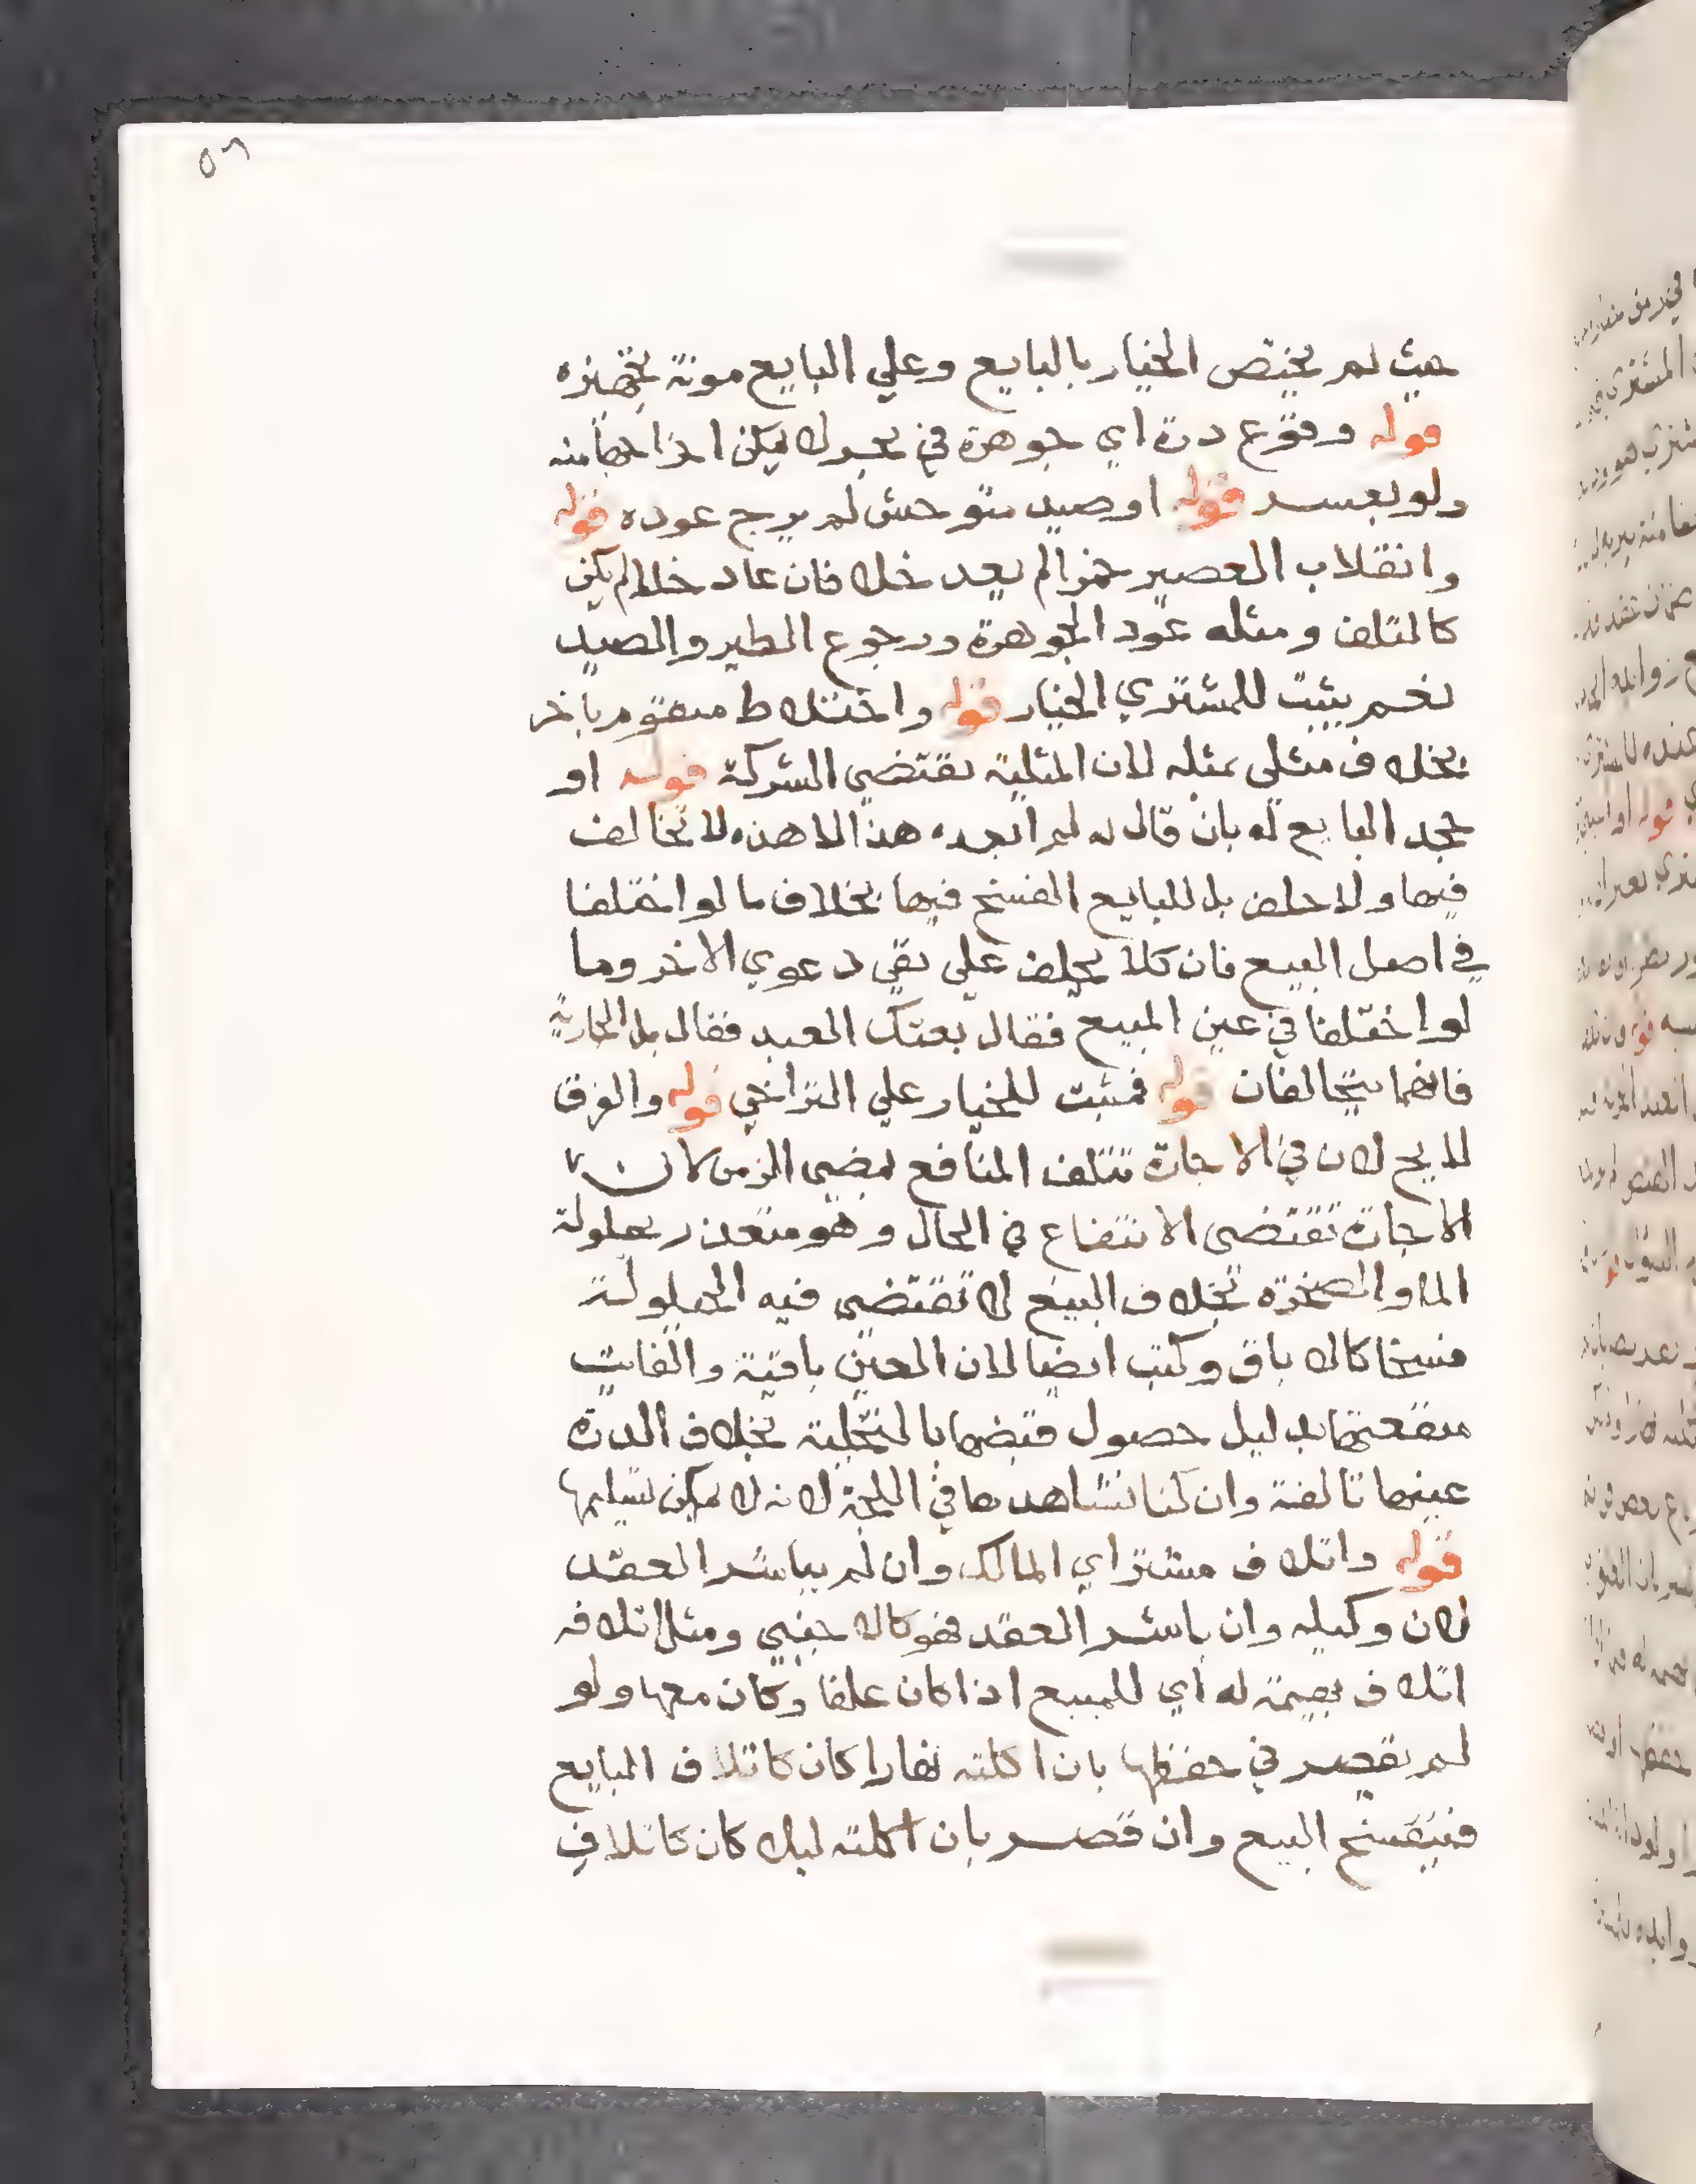 ٥٦
حيث لم يختص الخيار بالبايع وعلي البايع مونة تجهيزه
قوله ووقوع درة اي جوهرة في بحر لا يمكن اخراجها منه
ولو بعسر قوله اوصيد متوحش لم يرج عوده قوله
وانقلاب العصير خمرا لم يعد خلا فان عاد خلا لم يكن
كالتلف ومثله عود الجوهرة ورجوع الطير والصيد
نعم يثبت للمشتري الخيار قوله واختلاط متقوم باخر
بخلاف مثلي بمثله لان المثلية تقتضي الشركة قوله او
جحد البايع له بان قال له لم ابعه هذا الا هذه لا تخالف
فيها ولا حلف بل للبايع الفسخ فيها بخلاف ما لو اختلفا
في اصل البيع فان كلا يحلف علي نفي دعوي الاخر وما
لو اختلفا في عين المبيع فقال بعتك العبد فقال بل الجارية
فانهما يتحالفان قوله فيثبت للخيار علي التراخي قوله والفرق
لايح لان في الاجارة تتلف المنافع لمضي الزمن لان
الاجارة تقتضي الانتفاع في الحال وهو متعذر بحيلولة
الما والصخرة بخلاف البيع لا تقتضي فيه الحيلولة
فسخا كالاباق وكتب ايضا لان العين باقية والفايت
منفعتها بدليل حصول قبضها بالتخلية بخلاف الدرة
عينها تالفة وان كنا نشاهدها في اللجة لانه لا يمكن تسليمها
قوله واتلاف مشتر اي المالك وان لم يباشر العقد
لان وكيله وان باشر العقد فهو كالاجنبي ومثل اتلافه
اتلاف بهيمة له اي للمبيع اذا كان علفا وكان معها ولو
لم يقصر في حفظها بان اكلته نهارا كان كاتلاف البايع
فينفسخ البيع وان قصر بان اكلته ليلا كان كاتلاف